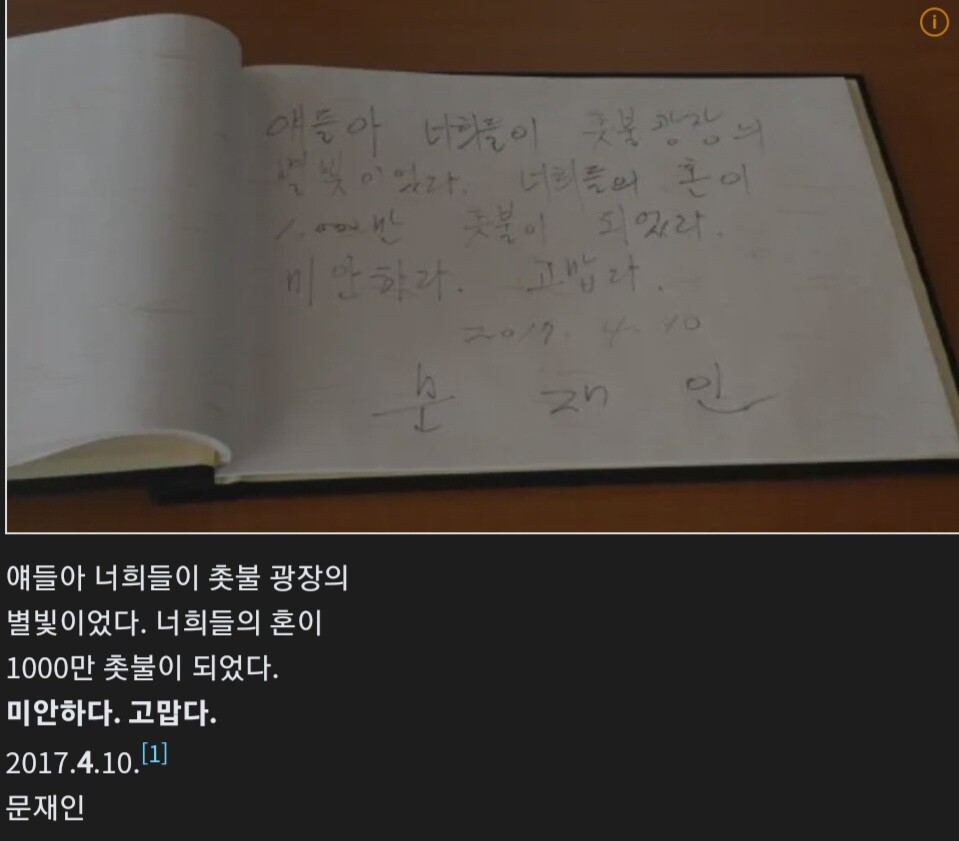 얘들아 너희들이 촛불광장의
별빛이었다. 너희들의 혼이
1,000만 촛불이 되었다.
미안하다. 고맙다.
2017. 4. 10
문 재 인
얘들아 너희들이 촛불 광장의
별빛이었다. 너희들의 혼이
1000만 촛불이 되었다.
미안하다. 고맙다.
2017.4.10.[1]
문재인